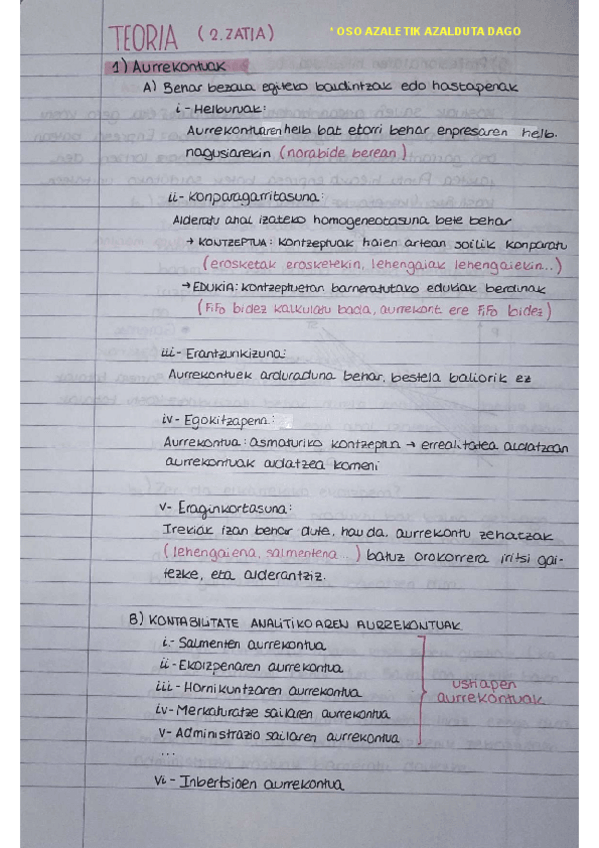 TEORIA (2. ZATIA)
* OSO AZALETIK AZALDUTA DAGO
1) Aurrekontuak
A) Behar bezala egiteko baldintzak edo hastapenak
i - Helburuak:
Aurrekontuaren helb bat etorri behar enpresaren helb.
nagusiarekin (norabide berean)
ii - Konparagarritasuna:
Alderatu ahal izateko homogeneotasuna bete behar
→ KONTZEPTUA: Kontzeptuak haien artean soilik konparatu
(erosketak erosketekin, lehengaiak lehengaiekin...)
→ EDUKIA: Kontzeptuetan barneratutako edukiak berdinak
(FiFo bidez kalkulatu bada, aurrekont ere FiFo bidez)
iii - Erantzunkizuna:
Aurrekontuek arduraduna behar, bestela baliorik ez
iv - Egokitzapena:
Aurrekontua: asmaturiko kontzeptua → errealitatea aldatzean
aurrekontuak aldatzea komeni
v - Eraginkortasuna:
Irekiak izan behar dute, hau da, aurrekontu zehatzak
(lehengaiena, salmentena...) batuz orokorrera iritsi gai-
tezke, eta alderantziz.
B) KONTABILITATE ANALITIKOAREN AURREKONTUAK
i.- Salmenten aurrekontua
ii - Ekoizpenaren aurrekontua
iii - Hornikuntzaren aurrekontua
iv - Merkaturatze sailaren aurrekontua
v - Administrazio sailaren aurrekontua
...
ustiapen
aurrekontuak
Vi - Inbertsioen aurrekontua